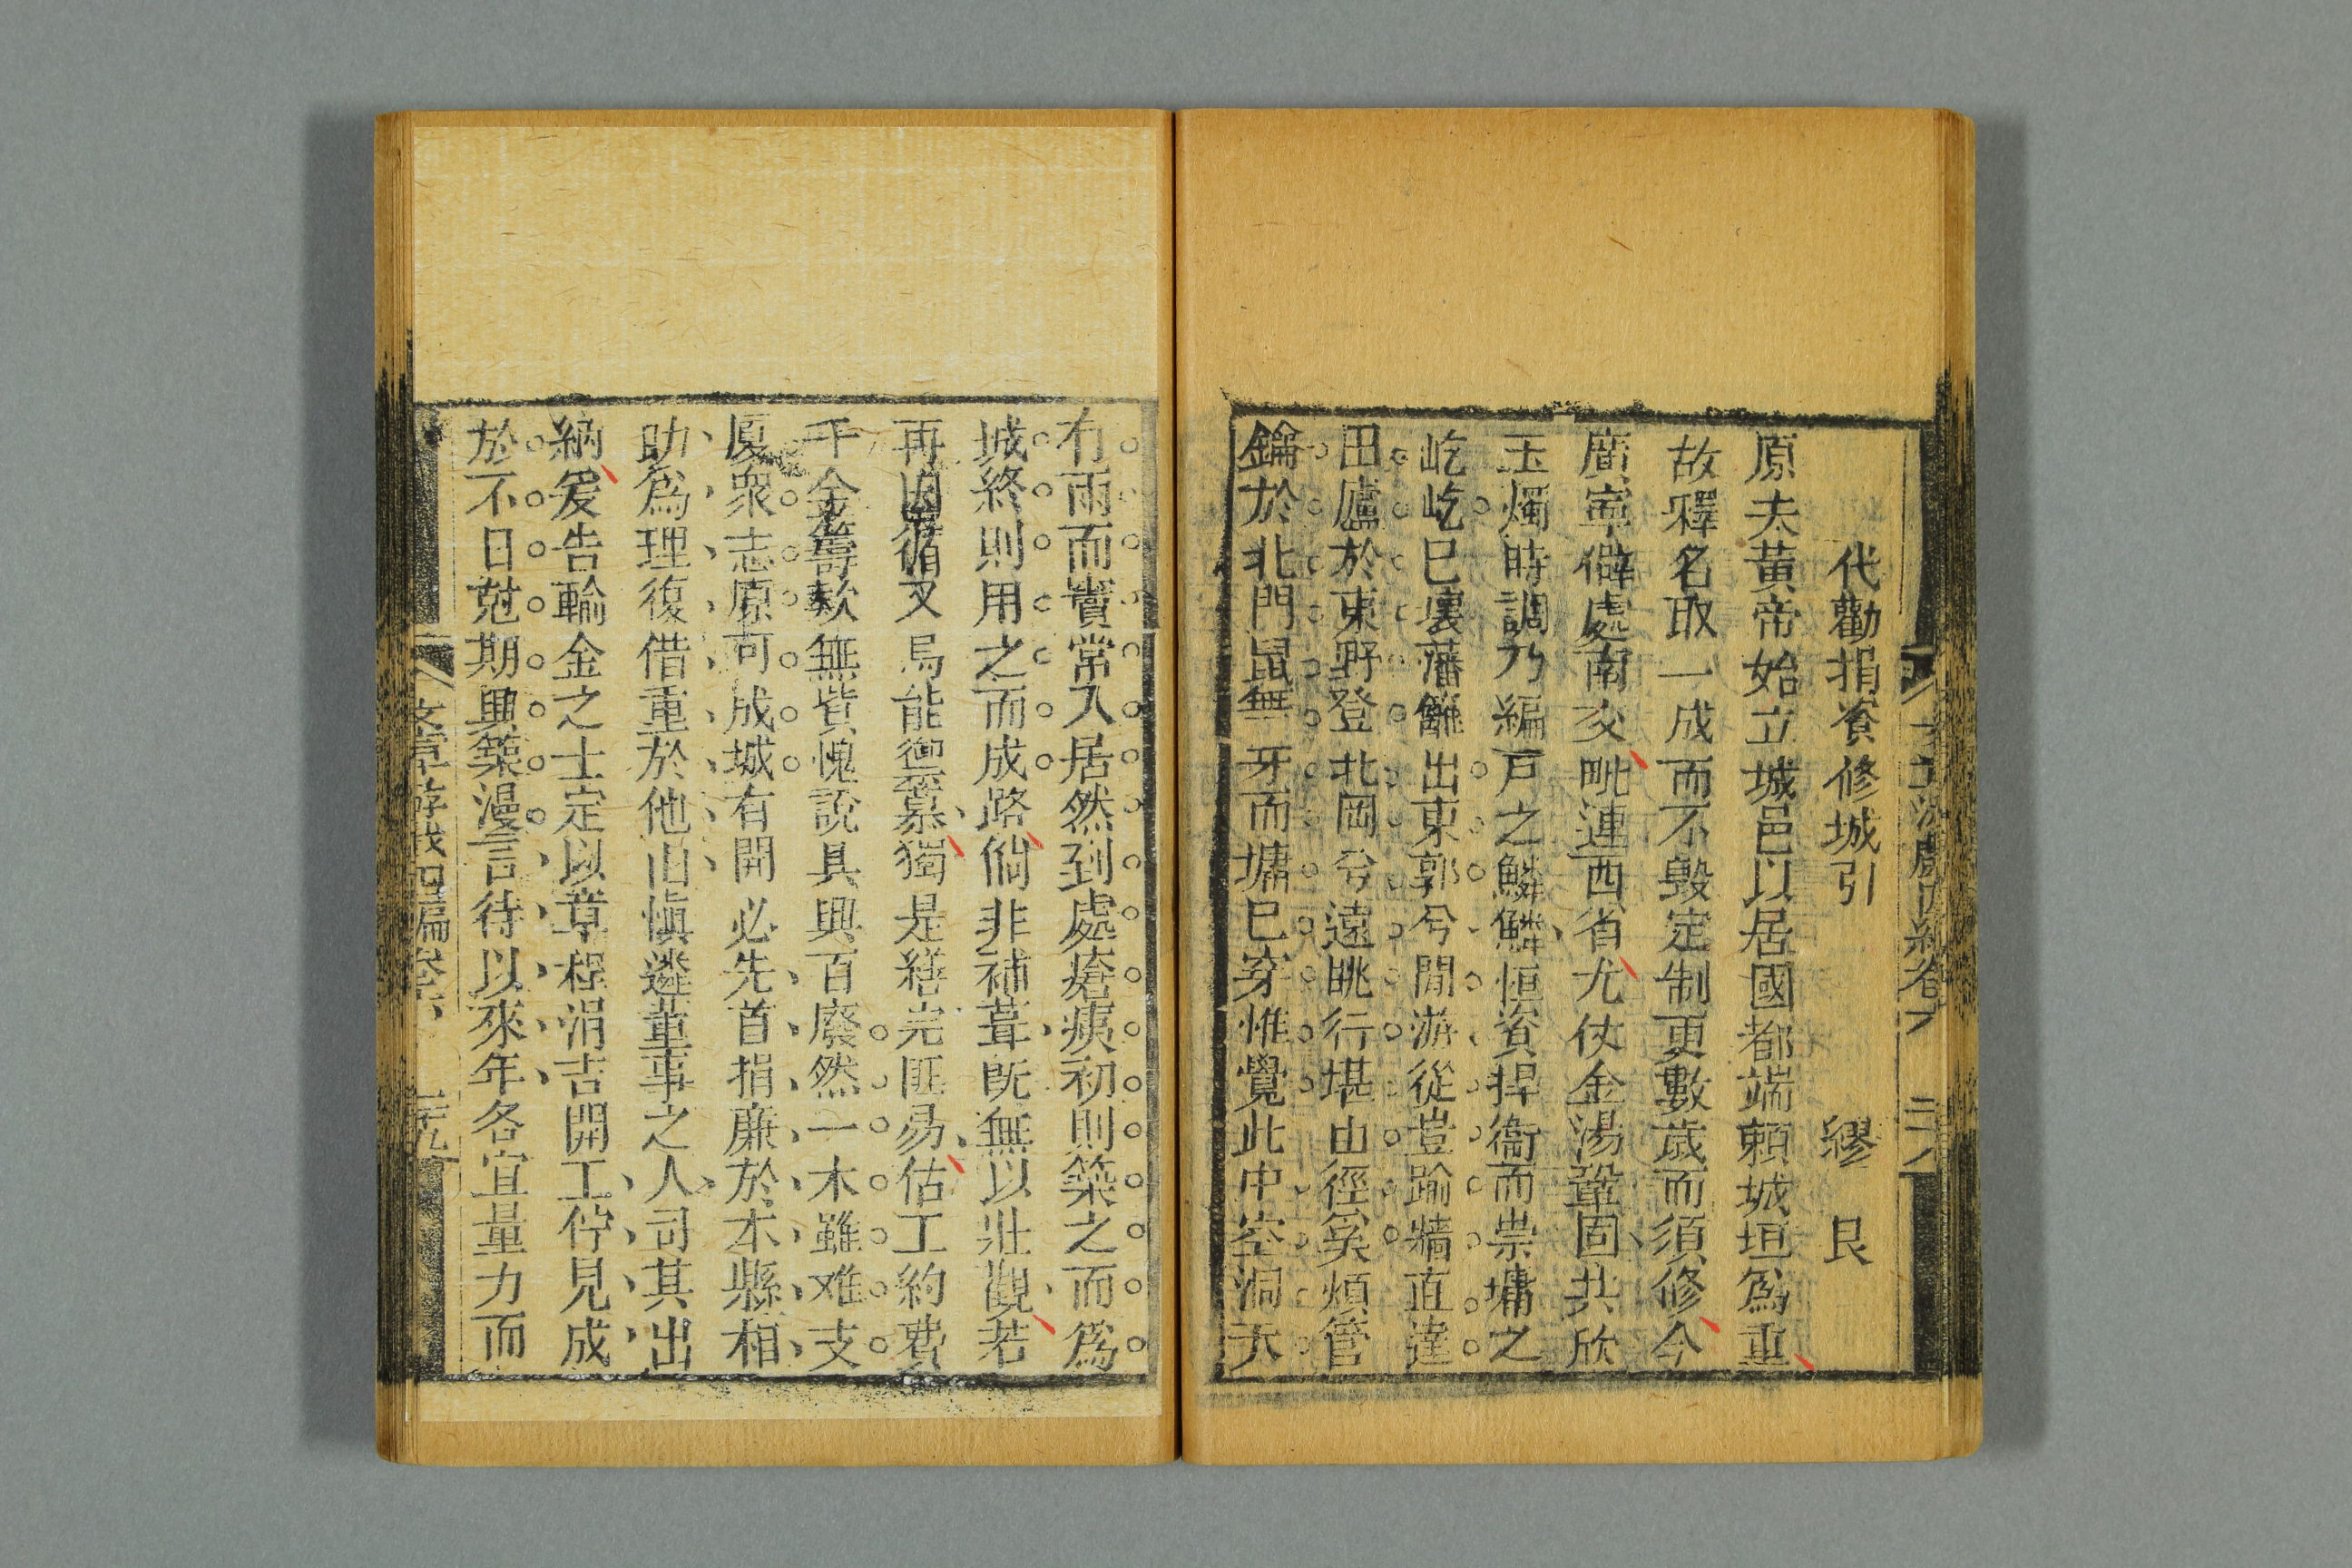 代勸捐資修城引　繆艮
原夫黃帝始立城邑以居國都端賴城垣爲重
故釋名取一成而不毀定制更數歲而須修今
廣寧僻處南交毗連西省尤仗金湯鞏固共欣
玉燭時調乃編戸之鱗鱗恒資捍衞而崇墉之
屹屹巳壞藩籬出東郭兮閒游從豈踰牆直達
田廬於東野登北岡兮遠眺行堪由徑奚煩管
鑰於北門鼠無牙而墉巳穿惟覺此中空洞天
冇雨而賣常入居然到處瘡痍初則築之而爲
城終則用之而成路倘非補葺旣無以壯觀若
再因循又烏能禦暴獨是繕完匪易估工約費
千金籌欵無貲愧說具興百廢然一木雖难支
厦衆志原可成城有開必先首捐廉於本縣相
助爲理復借重於他山愼遴董事之人司其出
納爰告輸金之士定以章程涓吉開工佇見成
於不日尅期興築漫言待以來年各宜量力而
文章游戲四編卷六　二十九